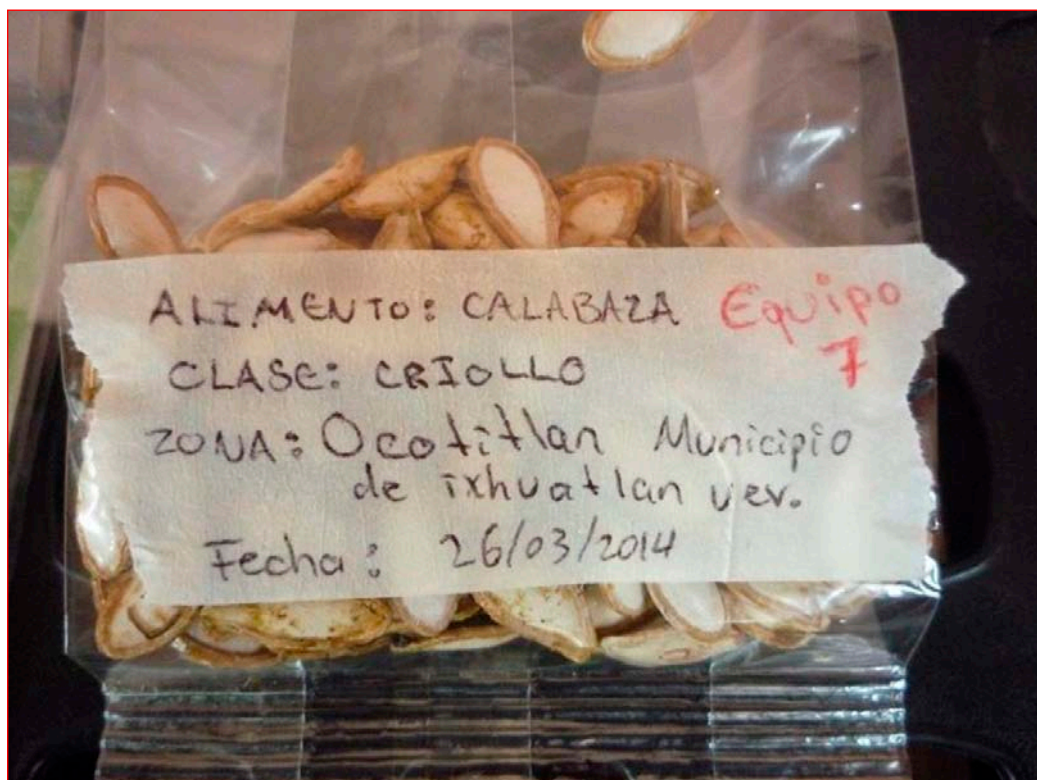 ALIMENTO: CALABAZA Equipo
7
CLASE: CRIOLLO
ZONA: Ocotitlan Municipio
de ixhuatlan ver.
Fecha: 26/03/2014